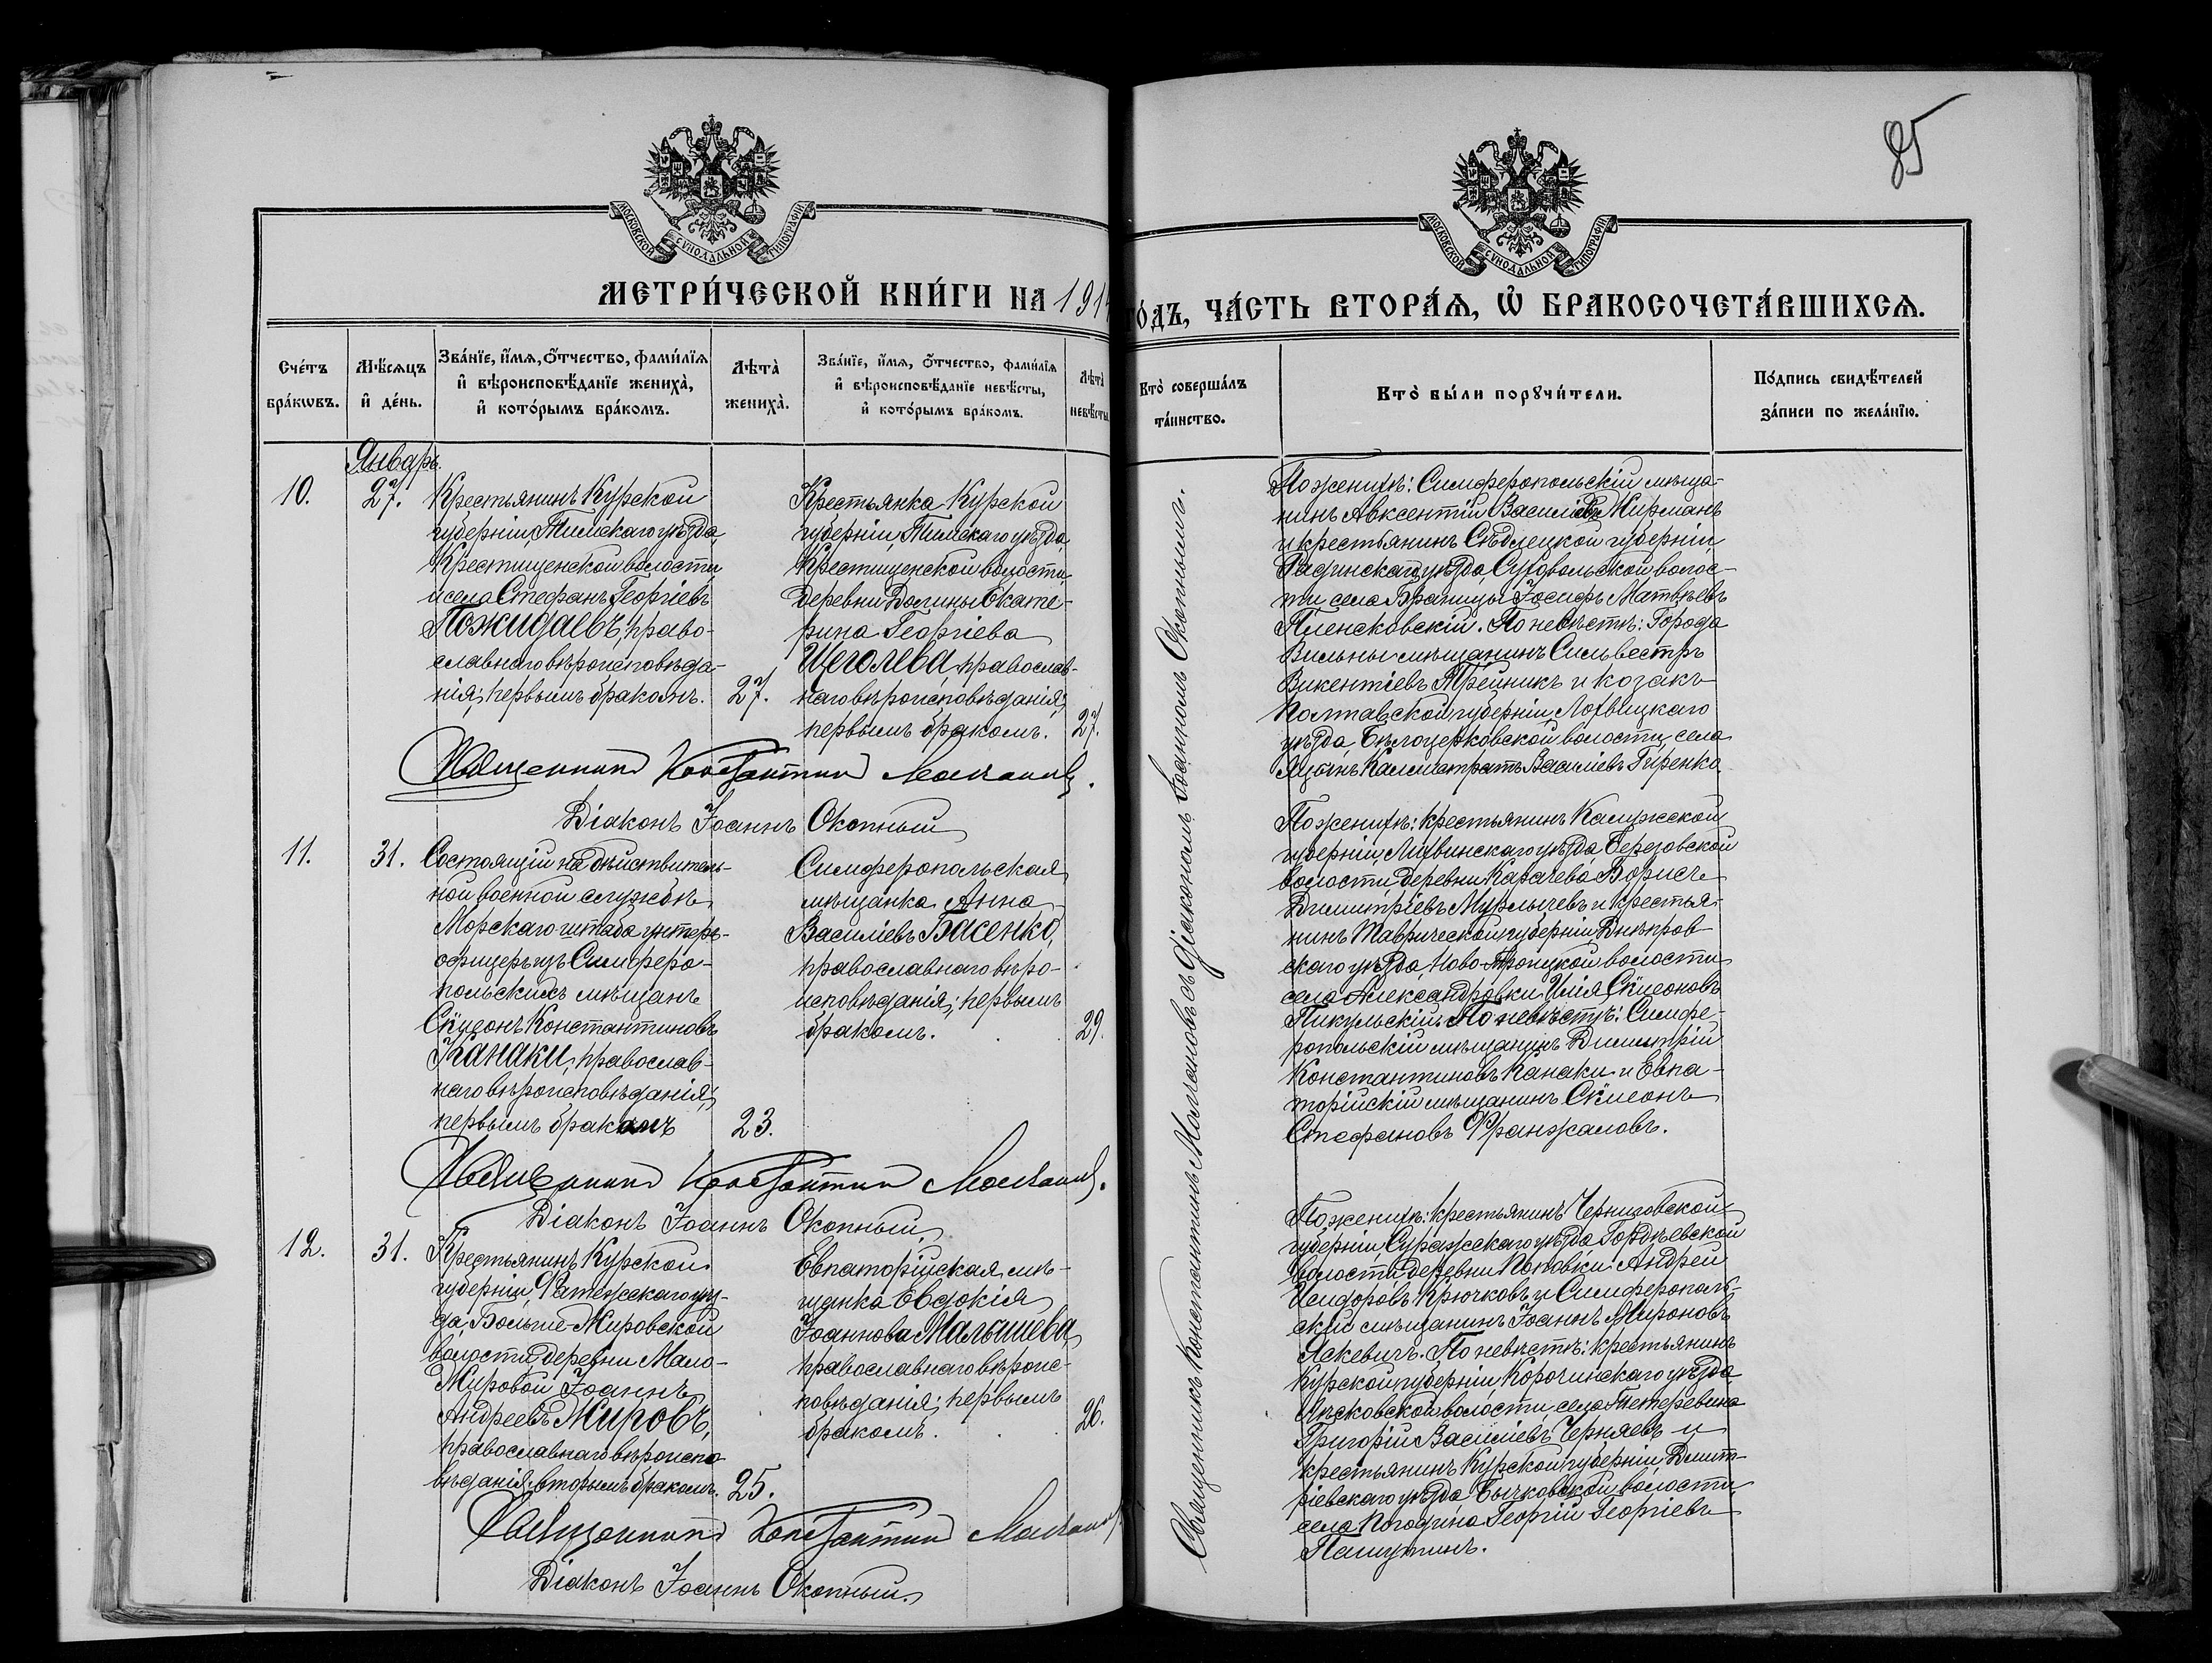 85
МОСКОВСКОЙ СѴНОДАЛЬНОЙ ТИПОГРАФІИ
МОСКОВСКОЙ СѴНОДАЛЬНОЙ ТИПОГРАФІИ
МЕТРИ́ЧЕСКОЙ КНИ́ГИ НА 1914
ГО́ДЪ, ЧА́СТЬ ВТОРА́Ѧ, Ѽ БРАКОСОЧЕТА́ВШИХСѦ.
Сче́тъ
бра́кѡвъ.
Мѣ́сѧцъ
и҆ де́нь.
Зва́нїе, и҆́мѧ, ѻ҆́тчество, фами́лїѧ
и҆ вѣроисповѣ́данїе жениха̀,
и҆ кото́рымъ бра́комъ.
Лѣта̀
жениха̀.
Зва́нїе, и҆́мѧ, ѻ҆́тчество, фами́лїѧ
и҆ вѣроисповѣ́данїе невѣ́сты,
и҆ кото́рымъ бра́комъ.
Лѣта̀
невѣ́сты
Кто̀ соверша́лъ
та́инство.
Кто̀ бы́ли порꙋчи́тели.
По́дпись свидѣ́телей
за́писи по жела́нїю.
Январь.
10.
27.
Крестьянинъ Курской
губерніи, Тимскаго уѣзда,
Крестищенской волости
и села Стефанъ Георгіевъ
Пожидаевъ, право-
славнаго вѣроисповѣда-
нія; первымъ бракомъ.
27.
Крестьянка Курской
губерніи, Тимскаго уѣзда,
Крестищенской волости,
деревни Долины Екате-
рина Георгіева
Щеголева, православ-
наго вѣроисповѣданія;
первымъ бракомъ.
27.
По женихѣ: Симферопольскій мѣща-
нинъ Авксентій Василіевъ Жирманъ
и крестьянинъ Сѣдлецкой губерніи,
Радинскаго уѣзда, Суховольской волос-
ти села Браницы Іосифъ Матвѣевъ
Пленсковскій. По невѣстѣ: Города
Вильны мѣщанинъ Сильвестръ
Викентіевъ Трейникъ и козакъ
Полтавской губерніи Лохвицкаго
уѣзда, Бѣлоцерковской волости, села
Калистратъ Василіевъ Гиренко
Священникъ Константинъ Молчановъ.
Діаконъ Іоаннъ Окопный
11.
31.
Состоящій на дѣйствитель-
ной военной службѣ
Морскаго штаба унтеръ-
офицеръ, изъ Симферо-
польскихъ мѣщанъ
Сѵмеонъ Константиновъ
Канаки, православ-
наго вѣроисповѣданія;
первымъ бракомъ
23.
Симферопольская
мѣщанка Анна
Василіевъ Басенко,
православнаго вѣро-
исповѣданія; первымъ
бракомъ.
29.
По женихѣ: крестьянинъ Калужской
губерніи, Лихвинскаго уѣзда, Березовской
волости, деревни Карачева Борисъ
Димитріевъ Мурлычевъ и крестья-
нинъ Таврической губерніи Днѣпров-
скаго уѣзда, Ново-Троицкой волости
села Александровки Илія Сѵмеоновъ
Пикульскій. По невѣстѣ: Симфе-
ропольскій мѣщанинъ Димитрій
Константиновъ Канаки и Евпа-
торійскій мѣщанинъ Сѵмеонъ
Стефановъ Франжаловъ.
Священникъ Константинъ Молчановъ.
Діаконъ Іоаннъ Окопный.
12.
31.
Крестьянинъ Курской
губерніи, Фатежскаго уѣз-
да, Больше-Жировской
волости, деревни Мало-
Жировой Іоаннъ
Андреевъ Жировъ,
православнаго вѣроиспо
вѣданія; вторымъ бракомъ.
25.
Евпаторійская мѣ-
щанка Евдокія
Іоаннова Малышева,
православнаго вѣроис-
повѣданія; первымъ
бракомъ.
26.
По женихѣ: крестьянинъ Черниговской
губерніи, Суражскаго уѣзда, Гордѣевской
волости, деревни Поповки Андрей
Исидоровъ Крючковъ и Симферополь-
скій мѣщанинъ Іоаннъ Мироновъ
Яскевичъ. По невѣстѣ: крестьянинъ
Курской губерніи, Корочинскаго уѣзда
волости, села Тетеревина
Григорій Василіевъ Черняевъ и
крестьянинъ Курской губерніи, Димит-
ріевскаго уѣзда, Бычковской волости
села Погодина Георгій Георгіевъ
Пашутинъ.
Священникъ Константинъ Молчановъ
Діаконъ Іоаннъ Окопный.
Священникъ Константинъ Молчановъ съ діакономъ Іоанномъ Окопнымъ.